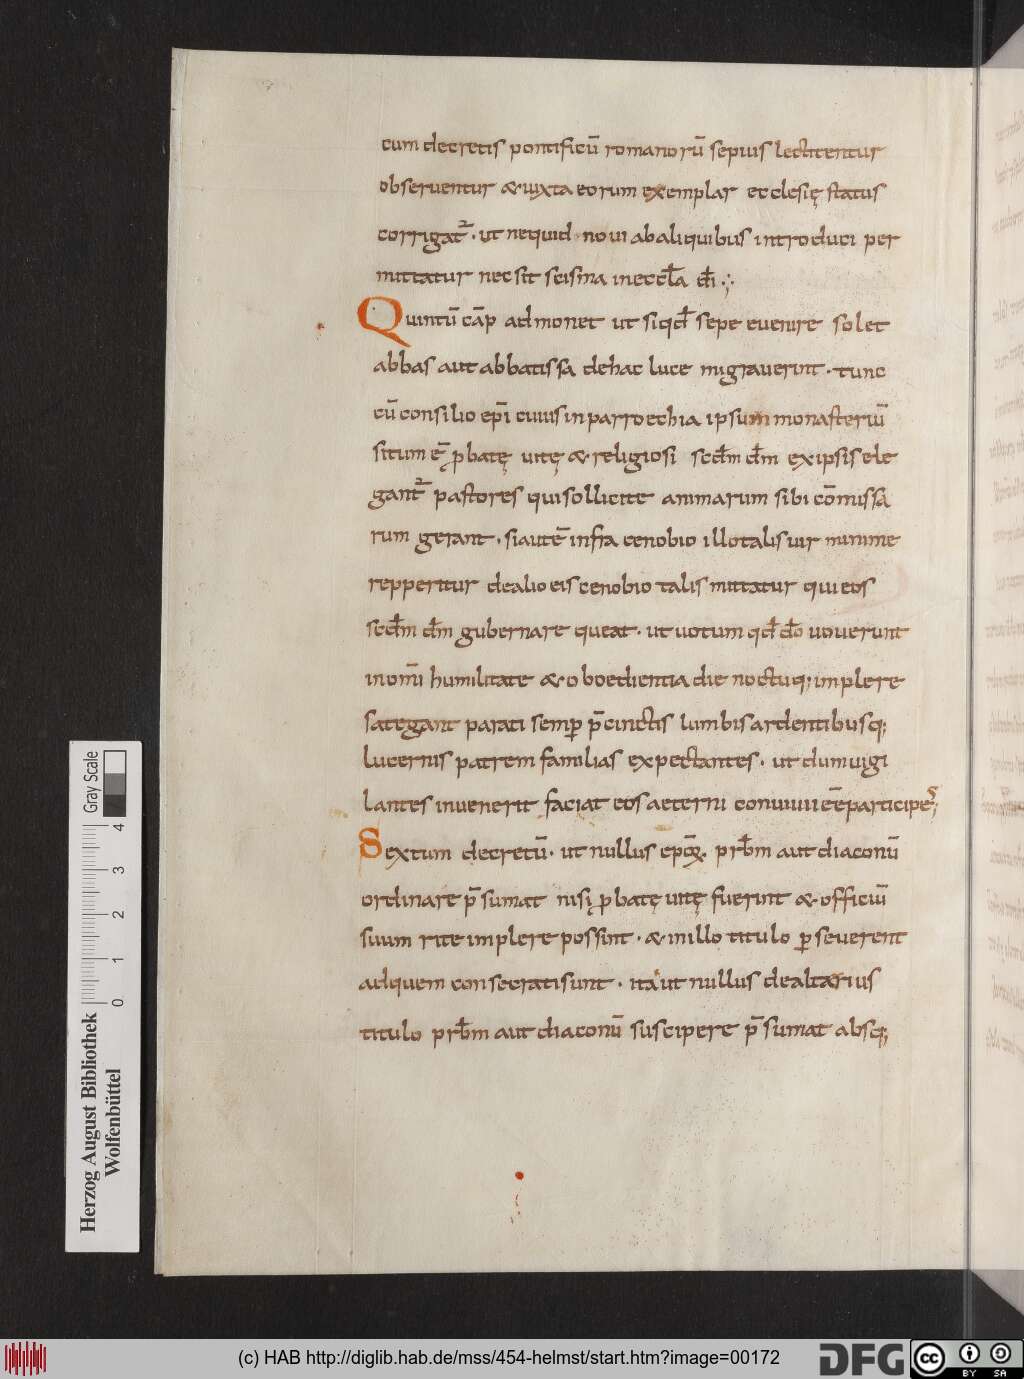 cum decretis pontificū romanorū sepius lectitentur
observentur & iuxta eorum exemplar ecclesię status
corrigat᷑ · ut nequid novi ab aliquibus introduci per
mittatur nec sit scisma in eccl̄a d̄i ·,·
Quintū cāp admonet ut siqd̄ sepe evenire solet
abbas aut abbatissa de hac luce migraverint · tunc
cū consilio ep̄i cuius in parroechia ipsum monasteriū
situm ē p̄batę vitę & religiosi scd̄m d̄m ex ipsis ele
gant᷑ pastores qui sollicite animarum sibi cōmissa
rum gerant · si autē infra cenobio illo talis vir minime
repperitur de alio eis cenobio talis mittatur qui eos
scd̄m d̄m gubernare queat · ut votum qd̄ d̄o voverunt
in om̄i humilitate & oboedientia die noctuq; implere
sategant parati semp̱ p̄cinctis lumbis ardentibusq;
lucernis patrem familias expectantes · ut dum vigi
lantes invenerit faciat eos aeterni convivii eē participes;
Sextum decretū · ut nullus epōꝝ · prb̄m aut diaconū
ordinare p̄sumat nisi p̱batę vitę fuerint & officiū
suum rite implere possint · & in illo titulo p̱severent
ad quem consecrati sunt · ita ut nullus de alterius
titulo prb̄m aut diaconū suscipere p̄sumat absq;
Herzog August Bibliothek
Wolfenbüttel
0 1 2 3 4
Gray Scale
(c) HAB http://diglib.hab.de/mss/454-helmst/start.htm?image=00172
DFG
cc
BY SA